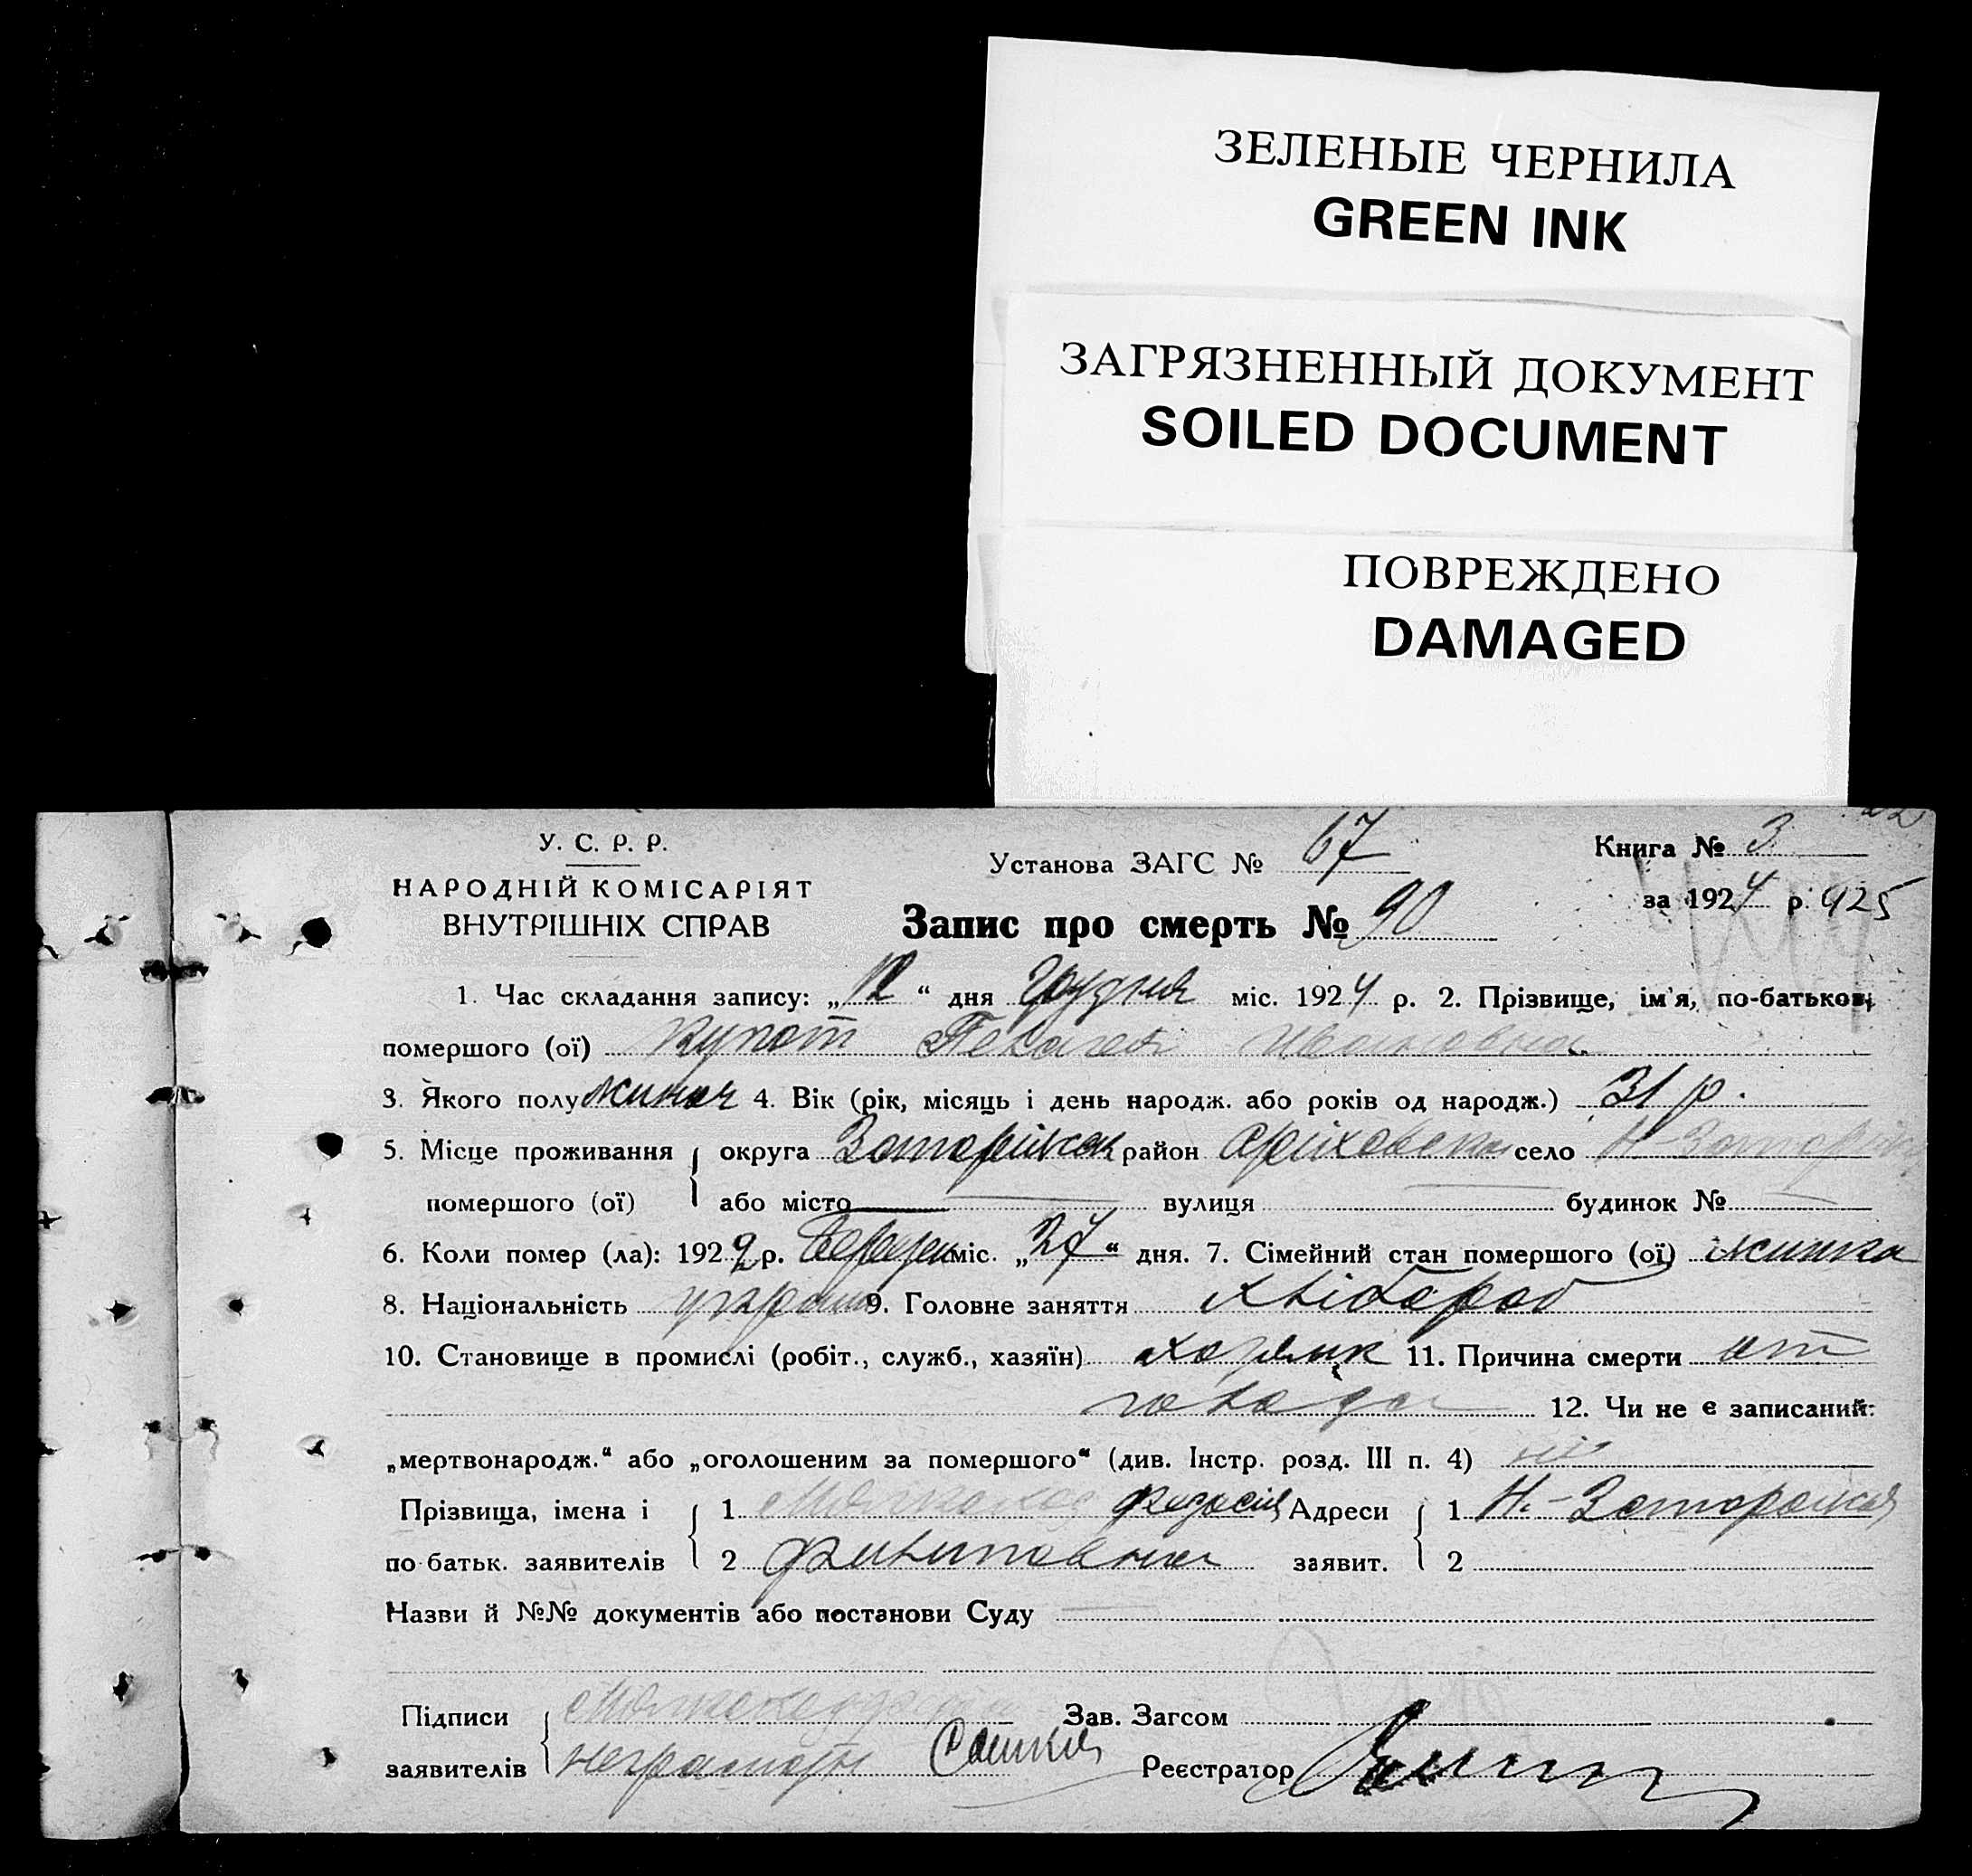 ЗЕЛЕНЫЕ ЧЕРНИЛА
GREEN INK
ЗАГРЯЗНЕННЫЙ ДОКУМЕНТ
SOILED DOCUMENT
ПОВРЕЖДЕНО
DAMAGED
У. С. Р. Р.
НАРОДНІЙ КОМІСАРІЯТ
ВНУТРІШНІХ СПРАВ
Установа ЗАГС № 67
Книга № 3
за 1924 р. 925
Запис про смерть № 90
1. Час складання запису: „12“ дня Грудня міс. 1924 р. 2. Прізвище, ім'я, по-батькові
помершого (ої) Купот Пелагея Ивановна
3. Якого полу жиноч 4. Вік (рік, місяць і день народж. або років од народж.) 31 р.
5. Місце проживання округа район село Н-
помершого (ої) або місто вулиця будинок №
6. Коли помер (ла): 1922 р. міс. „27“ дня. 7. Сімейний стан помершого (ої) жинка
8. Національність 9. Головне заняття хлібороб
10. Становище в промислі (робіт., служб., хазяїн) 11. Причина смерти от
голода 12. Чи не є записаний:
„мертвонародж.“ або „оголошеним за помершого“ (див. Інстр. розд. III п. 4) ні
Прізвища, імена і 1 Адреси 1 Н.-
по батьк. заявителів 2 Филиповна заявит. 2
Назви й №№ документів або постанови Суду
Підписи Зав. Загсом
заявителів Реєстратор